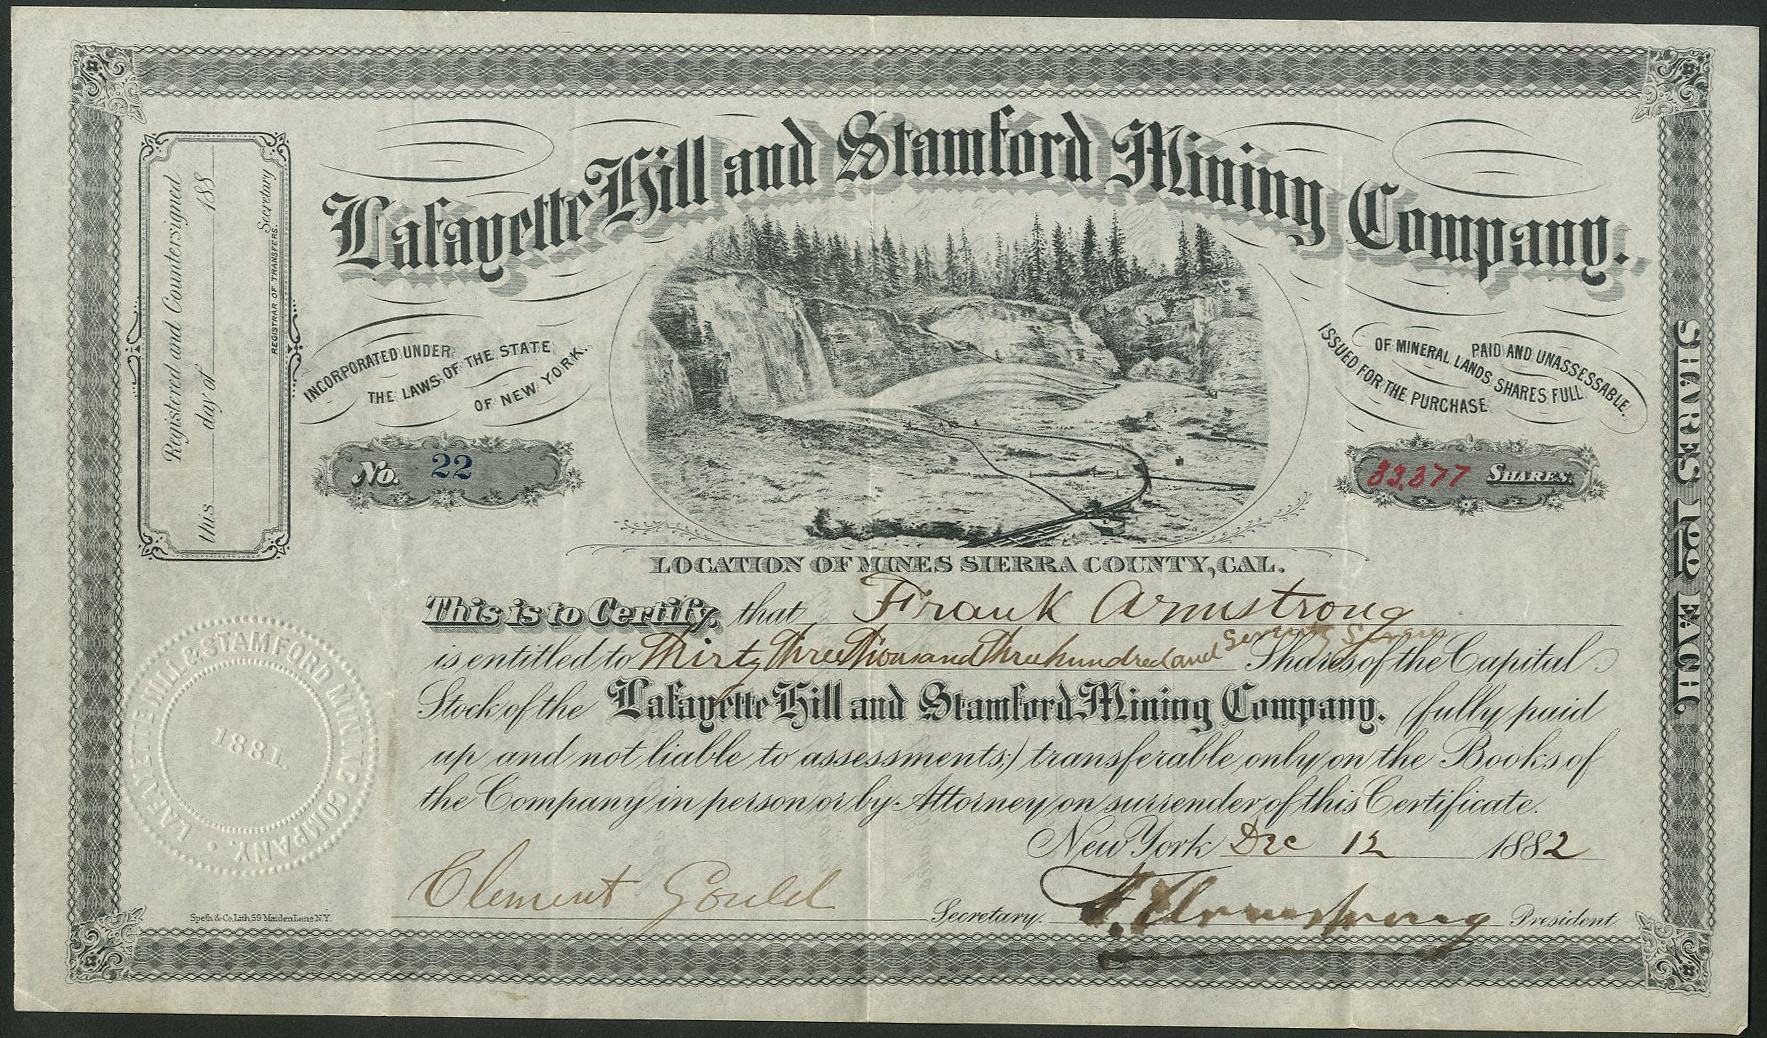 Lafayette Hill and Stamford Mining Company.
INCORPORATED UNDER
THE LAWS OF THE STATE
OF NEW YORK.
ISSUED FOR THE PURCHASE
OF MINERAL LANDS SHARES FULL
PAID AND UNASSESSABLE.
No. 22
33,377 SHARES.
LOCATION OF MINES SIERRA COUNTY, CAL.
This is to Certify, that Frank Armstrong
is entitled to Thirty Three Thousand Three hundred and Seventy Seven Shares of the Capital
Stock of the Lafayette Hill and Stamford Mining Company. (fully paid
up and not liable to assessments;) transferable only on the Books of
the Company in person or by Attorney on surrender of this Certificate.
New York Dec 12 1882
Clement Gould Secretary. F. Armstrong President
Registered and Countersigned
this day of 188
Secretary
REGISTRAR OF TRANSFERS.
SHARES $100 EACH
LAFAYETTE HILL & STAMFORD MINING COMPANY.
1881.
Speth & Co. Lith. 59 Maiden Lane N.Y.